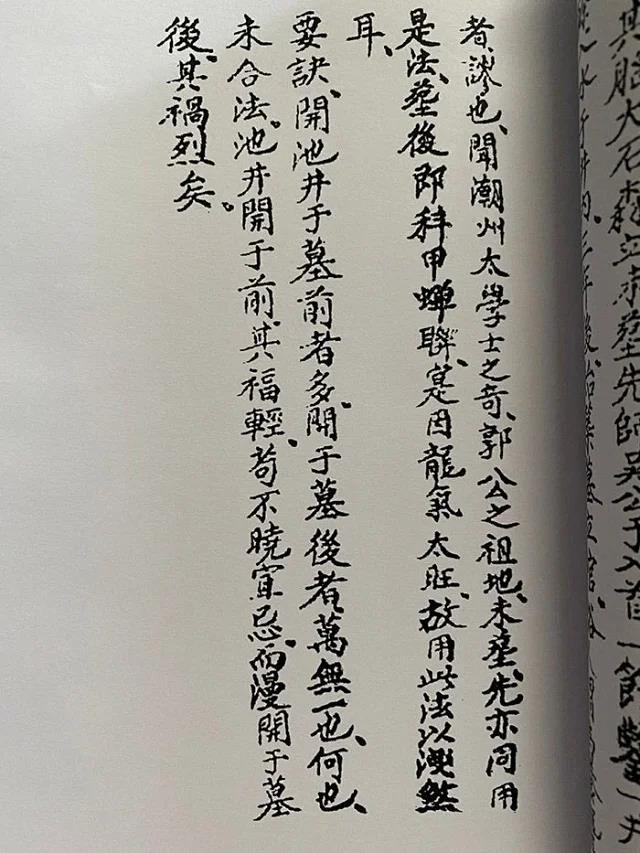 大石 塟先師吳公于入首一節鑿一井
三年後始葬墓
者、謬也、聞潮州太學士之奇、郭公之祖地、未塟、先亦同用
是法、塟後即科甲蟬聯、寔因龍氣太旺、故用此法以洩煞
耳、
要訣、開池井于墓前者多、開于墓後者、萬無一也、何也、
未合法。池井開于前、其福輕、苟不曉宜忌、而漫開于墓
後、其禍烈矣。